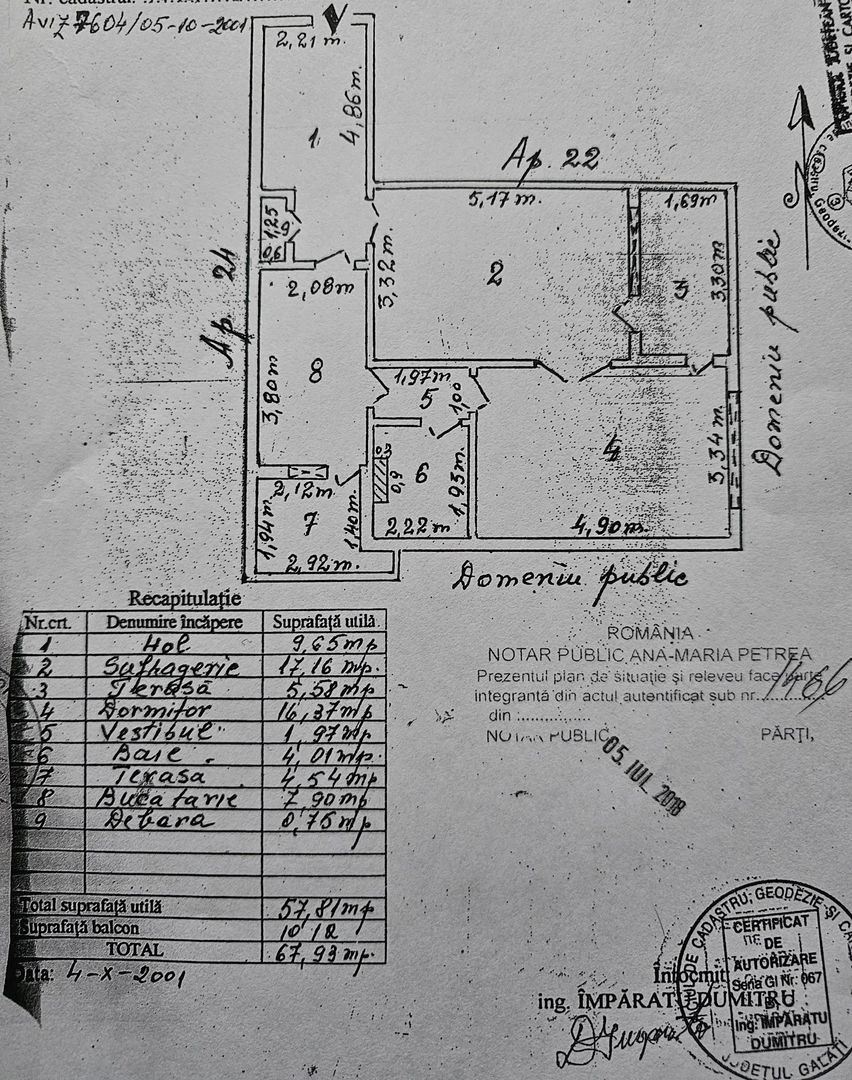 Nr. cadastral:
Aviz 7604/05-10-2001
2,21 m.
4,86 m.
1
Ap. 22
5,17 m.
1,69 m
1,25
9
0,6
Ap. 24
2,08 m
5,32 m.
2
3
3,30 m
Domeniu public
3,80 m.
8
1,97 m.
5
1,00
4
3,34 m.
0,9
6
1,93 m.
2,12 m.
1,94 m.
7
1,40 m.
2,22 m
4,90 m.
2,92 m.
Domeniu public
Recapitulație
Nr.crt. Denumire încăpere Suprafață utilă
1 Hol 9,65 mp
2 Sufragerie 17,16 mp.
3 Terasă 5,58 mp
4 Dormitor 16,37 mp
5 Vestibul 1,97 mp
6 Baie. 4,01 mp.
7 Terasa 4,54 mp
8 Bucatarie 7,90 mp
9 Debara 0,75 mp
Total suprafață utilă 57,81 mp
Suprafață balcon 10,12
TOTAL 67,93 mp.
Data: 4-X-2001
ROMÂNIA
NOTAR PUBLIC ANA-MARIA PETREA
Prezentul plan de situație și releveu face parte
integrantă din actul autentificat sub nr. 1466
din ..............
NOTAR PUBLIC, PĂRȚI,
05. IUL 2018
Întocmit
ing. ÎMPĂRATU DUMITRU
DE CADASTRU, GEODEZIE ȘI CA
CERTIFICAT
DE
AUTORIZARE
Seria Gl Nr. 067
Ing. ÎMPĂRATU
DUMITRU
JUDEȚUL GALAȚI